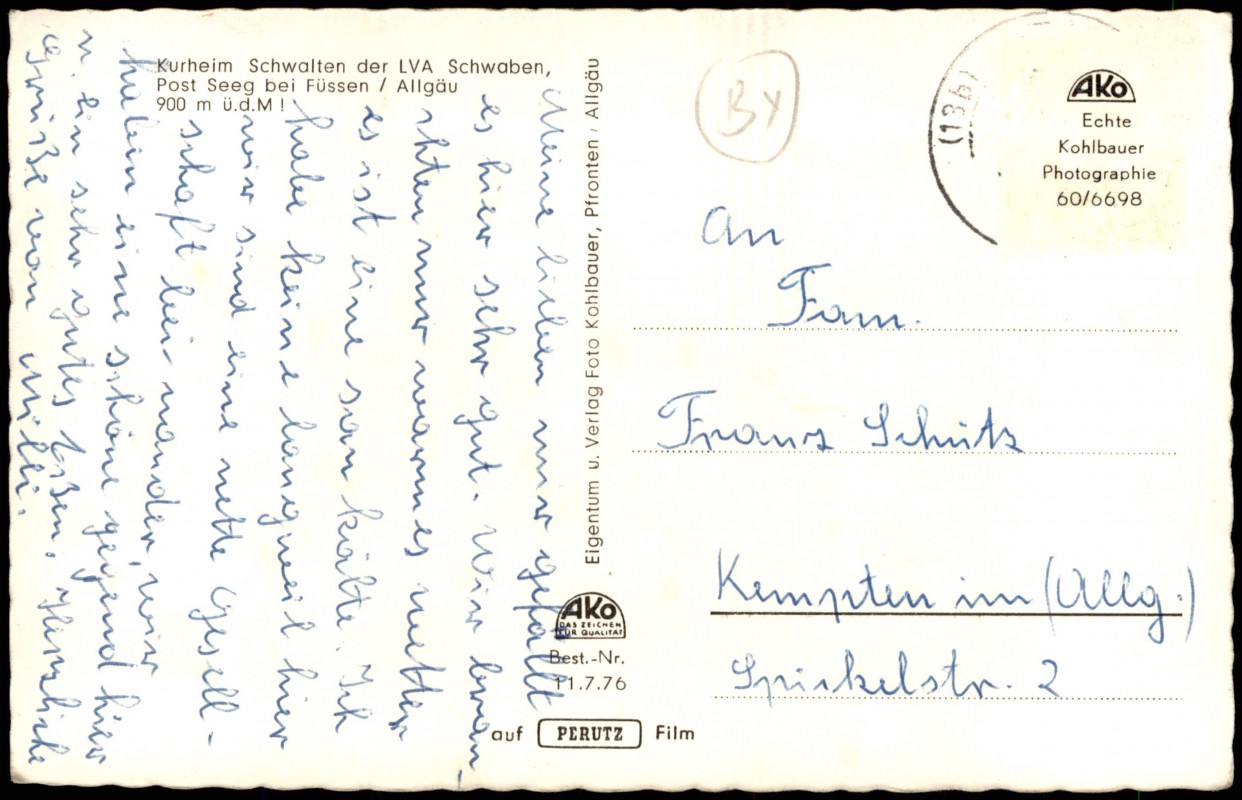 Kurheim Schwalten der LVA Schwaben,
Post Seeg bei Füssen / Allgäu
900 m ü.d.M!
Meine lieben mir gefällt
es hier sehr gut. Wir brau-
chten nur warmes wetter
es ist eine sau kälte. Ich
habe keine langweil hier
wir sind eine nette Gesell-
schaft bei-nander, wir
haben eine schöne gegend hier
u. ein sehr gutes Eßen. Herzliche
Grüße von Milli.
Eigentum u. Verlag Foto Kohlbauer, Pfronten / Allgäu
AKO
DAS ZEICHEN
FÜR QUALITÄT
Best.-Nr.
11.7.76
auf PERUTZ Film
BY
(13b)
AKO
Echte
Kohlbauer
Photographie
60/6698
An
Fam.
Franz Schütz
Kempten im (Allg.)
Spickelstr. 2